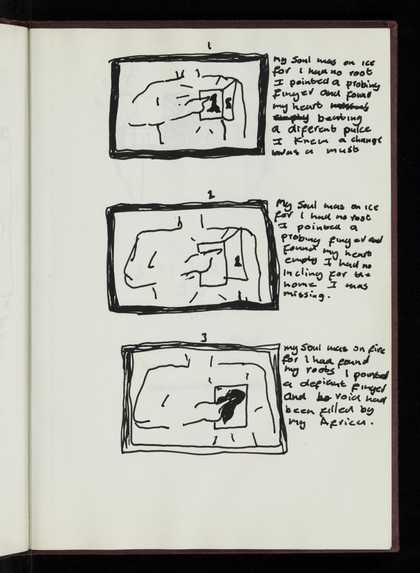 1
my soul was on ice
for I had no root
I pointed a probing
finger and found
my heart missing
empty beating
a diferent pulce
I knew a change
was a must
2
My soul was on ice
for I had no root
I pointed a
probing finger and
found my heart
empty I had no
incling for the
home I was
missing.
3
my soul was on fire
for I had found
my roots I pointed
a defiant finger
and be void had
been filled by
my Africa.